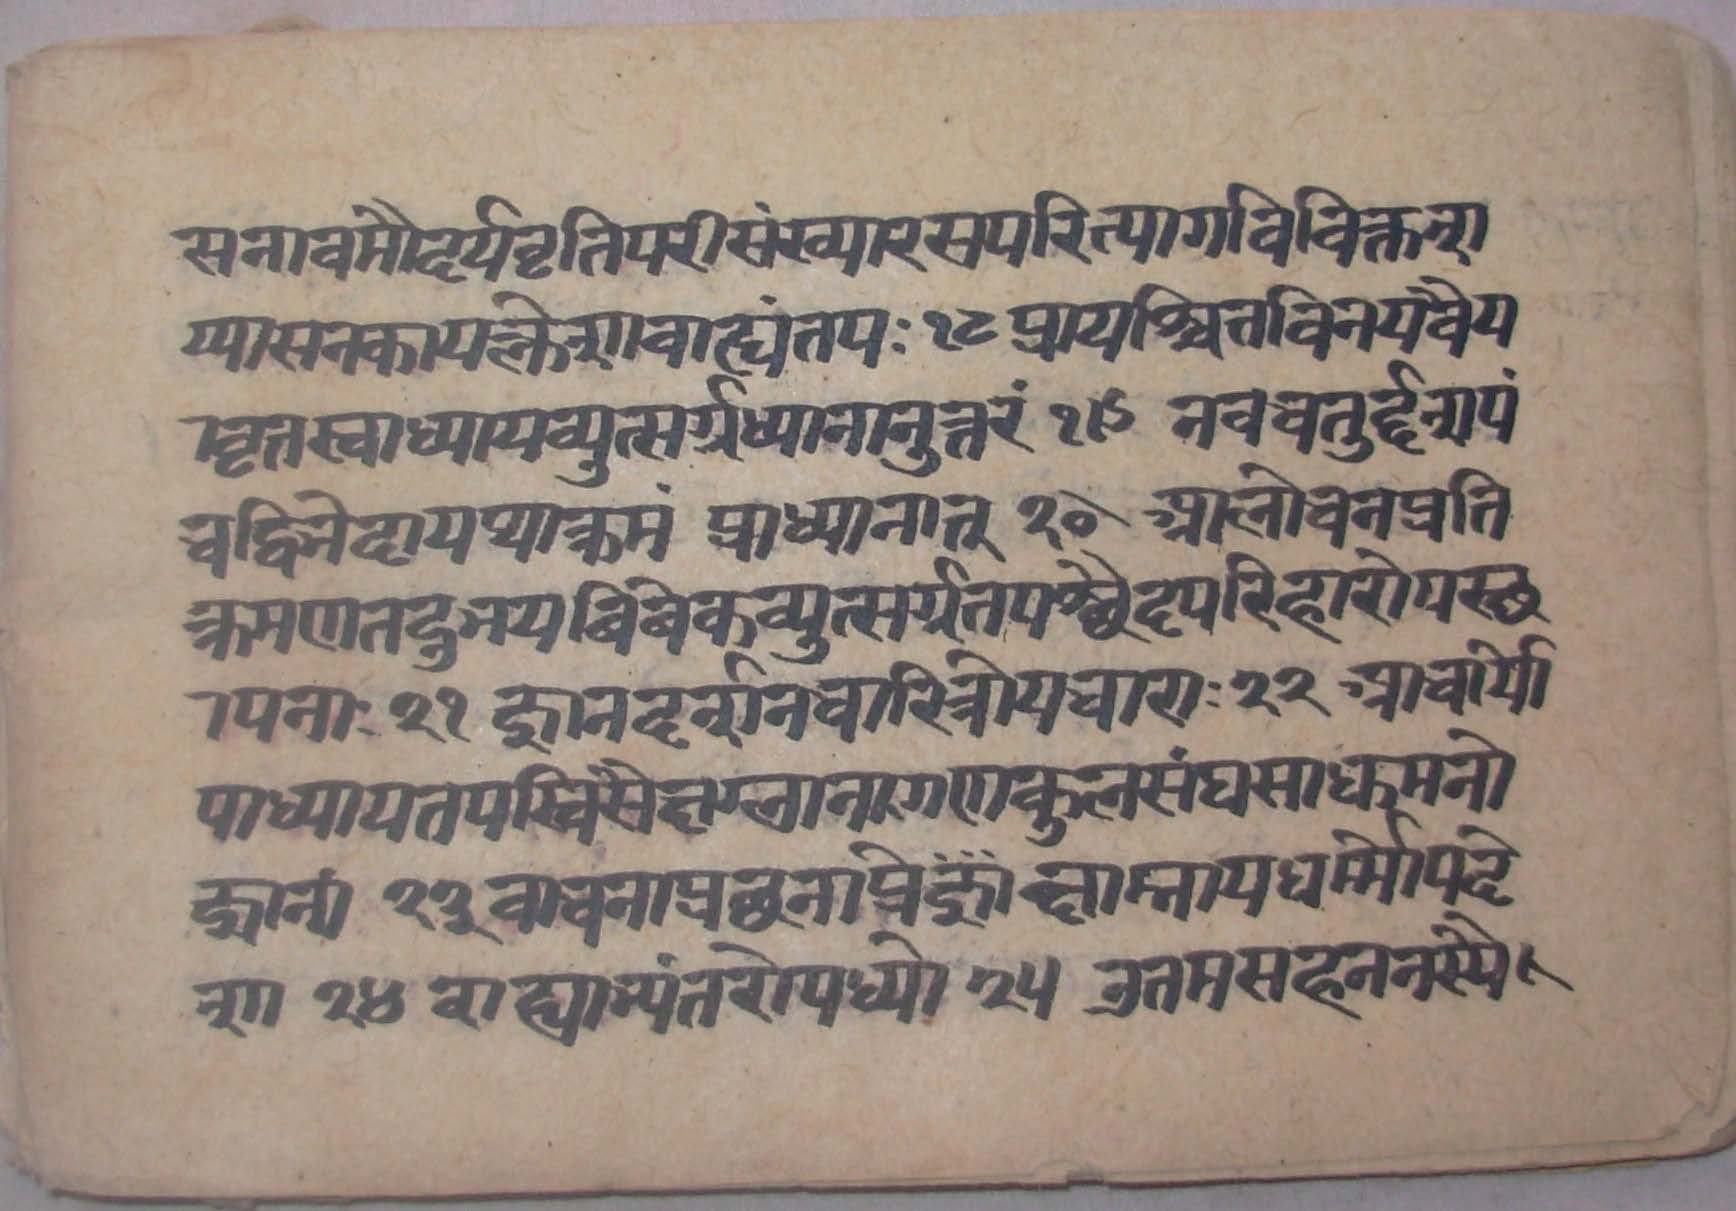 सनावमौदर्यवृतिपरीसंख्यारसपरित्यागविविक्तश
य्यासनकायक्लेशावाह्यंतपः १८ प्रायश्चित्तविनयवैय
ावृत्तस्वाध्यायव्युत्सर्गध्यानानुत्तरं १९ नवचतुर्द्दशपं
चद्विनेदायथाक्रमं प्राध्यानात् २० आलोचनप्रति
क्रमणतदुभयबिबेकव्युत्सर्गतपश्छेदपरिहारोपस्छ
ापनाः २१ ज्ञानदर्शनचारित्रोपचाराः २२ आचार्यो
पाध्यायतपस्विसैक्षग्लानगणकुलसंघसाधुमनो
ज्ञानां २३ वाचनाप्रछनाप्रेक्षाम्नायधर्म्मोपदे
शा २४ वाह्याभ्यंतरोपध्यो २५ उतमसहननस्यै